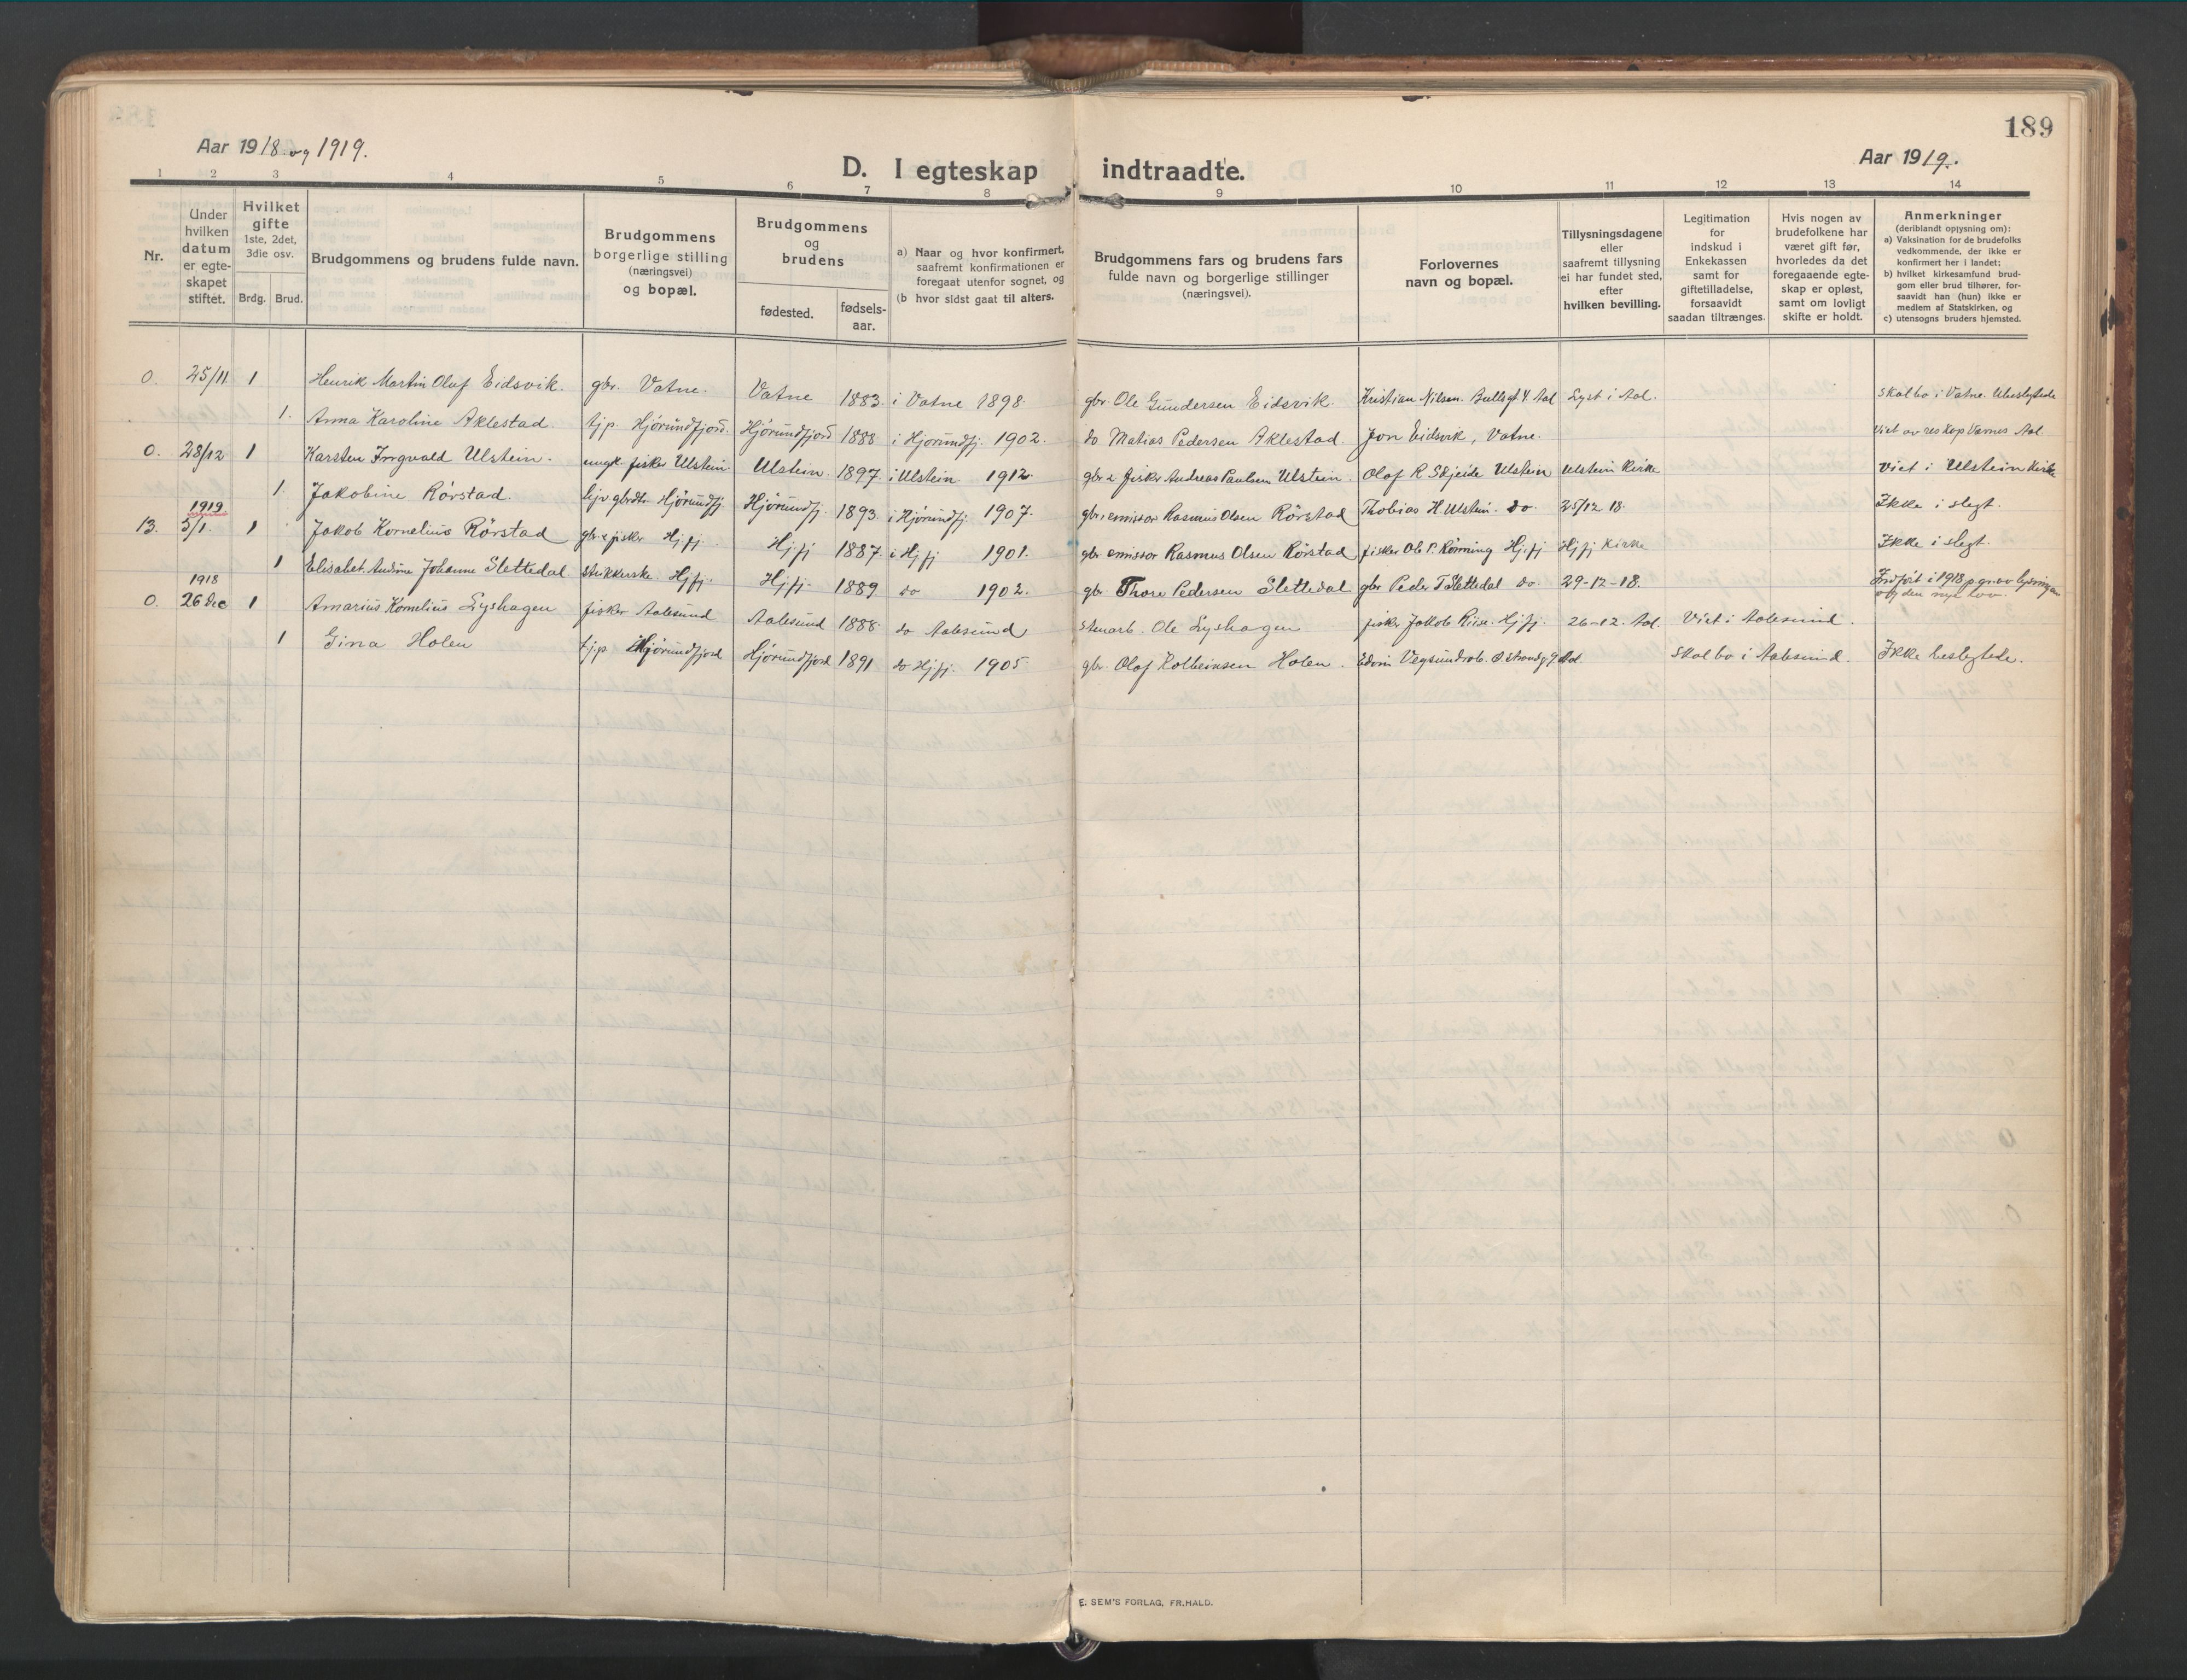 189
Aar 1918 og 1919.
D. I egteskap indtraadte.
Aar 1919.
1 2 3 4 5 6 7 8 9 10 11 12 13 14
Nr.
Under
hvilken
datum
er egte-
skapet
stiftet.
Hvilket
gifte
1ste, 2det,
3die osv.
Brdg. Brud.
Brudgommens og brudens fulde navn.
Brudgommens
borgerlige stilling
(næringsvei)
og bopæl.
Brudgommens
og
brudens
fødested.
fødsels-
aar.
a) Naar og hvor konfirmert,
saafremt konfirmationen er
foregaat utenfor sognet, og
(b hvor sidst gaat til alters.
Brudgommens fars og brudens fars
fulde navn og borgerlige stillinger
(næringsvei).
Forlovernes
navn og bopæl.
Tillysningsdagene
eller
saafremt tillysning
ei har fundet sted,
efter
hvilken bevilling.
Legitimation
for
indskud i
Enkekassen
samt for
giftetilladelse,
forsaavidt
saadan tiltrænges.
Hvis nogen av
brudefolkene har
været gift før,
hvorledes da det
foregaaende egte-
skap er opløst,
samt om lovligt
skifte er holdt.
Anmerkninger
(deriblandt oplysning om):
a) Vaksination for de brudefolks
vedkommende, der ikke er
konfirmert her i landet;
b) hvilket kirkesamfund brud-
gom eller brud tilhører, for-
saavidt han (hun) ikke er
medlem af Statskirken, og
c) utensogns bruders hjemsted.
0. 25/11 1 Henrik Martin Olaf Eidsvik. gbr. Vatne. Vatne 1883. i Vatne 1898. gbr. Ole Gundersen Eidsvik. Kristian Nilsen. Bullsgt 4. Aal Lyst i Aal. Skal bo i Vatne. Ubeslegtede
1. Anna Karoline Aklestad. tjp. Hjørundfjord. Hjørundfjord 1888 i Hjørundfj. 1902. do Matias Pedersen Aklestad. Jon Eidsvik, Vatne. Viet av res kap Varnes Aal.
0. 28/12 1 Karsten Ingvald Ulstein. ungk. fisker Ulstein. Ulstein 1897. i Ulstein. 1912. gbr & fisker Andreas Paulsen Ulstein. Olaf R Skjeide Ulstein Ulstein Kirke Viet i Ulstein Kirke
1. Jakobine Rørstad. gbrdtr. Hjørundfj. Hjørundfj. 1893. i Hjørundfj. 1907. gbr, emissør Rasmus Olsen Rørstad Thobias H Ulstein. do. 25/12 18. Ikke i slegt.
1919
13. 5/1. 1 Jakob Kornelius Rørstad gbr & fisker Hj.fj. Hj.fj 1887. i Hj.fj 1901. gbr emissør Rasmus Olsen Rørstad fisker Ole P. Rørning Hj.fj Hj.fj Kirke Ikke i slegt.
1 Elisabet Andrine Johanne Slettedal strikkerske. Hj.fj. Hj.fj. 1889 do 1902. gbr. Thore Pedersen Slettedal gbr Peder T Slettedal do. 29-12-18. Indført i 1918 p gr. av lysningen
og den nye lov.
1918
0. 26 dec 1 Amarius Kornelius Lyshagen fisker Aalesund Aalesund 1888. do Aalesund Stenarb. Ole Lyshagen fisker Jakob Riise. Hj.fj. 26-12. Aal. Viet i Aalesund.
1 Gina Holen tjp i Hjørundfjord Hjørundfjord 1891 do Hj.fj. 1905 gbr. Olaf Kolbeinsen Holen. Edvin Vegsund Aal. Skal bo i Aalesund. Ikke beslegtede.
E. SEM'S FORLAG, FR.HALD.